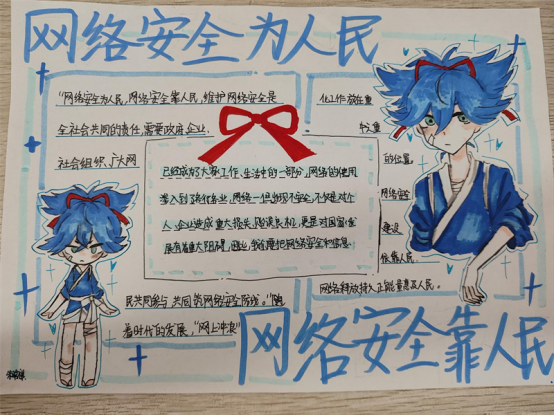 网络安全为人民
"网络安全为人民,网络安全靠人民,维护网络安全是
全社会共同的责任,需要政府,企业,
社会组织、广大网
民共同参与,共同筑网络安全防线。"随
着时代的发展,"网上冲浪"
已经成为了大家工作、生活中的一部分,网络的使用
渗入到了各行各业,网络一旦出现不安全,不仅是对个
人、企业造成重大损失,贻误良机,更是对国家
展有着重大阻碍,因此,我们要把网络安全和信息
化工作放在重
中之重
的位置,
网络安全
建设
依靠人民,
网络释放持久正能量惠及人民。
网络安全靠人民